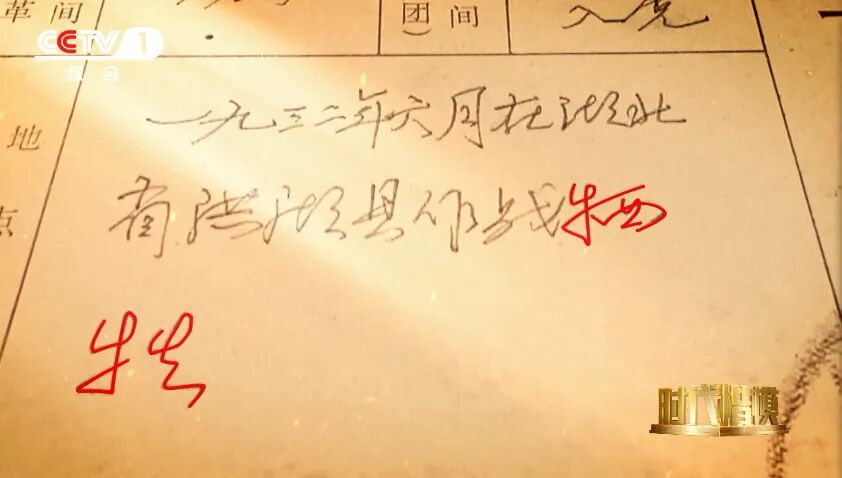 革间
团）间
入党
CCTV 1
综合
地点
一九三二年六月在湖北
省洪湖县作战牺
牲
时代楷模